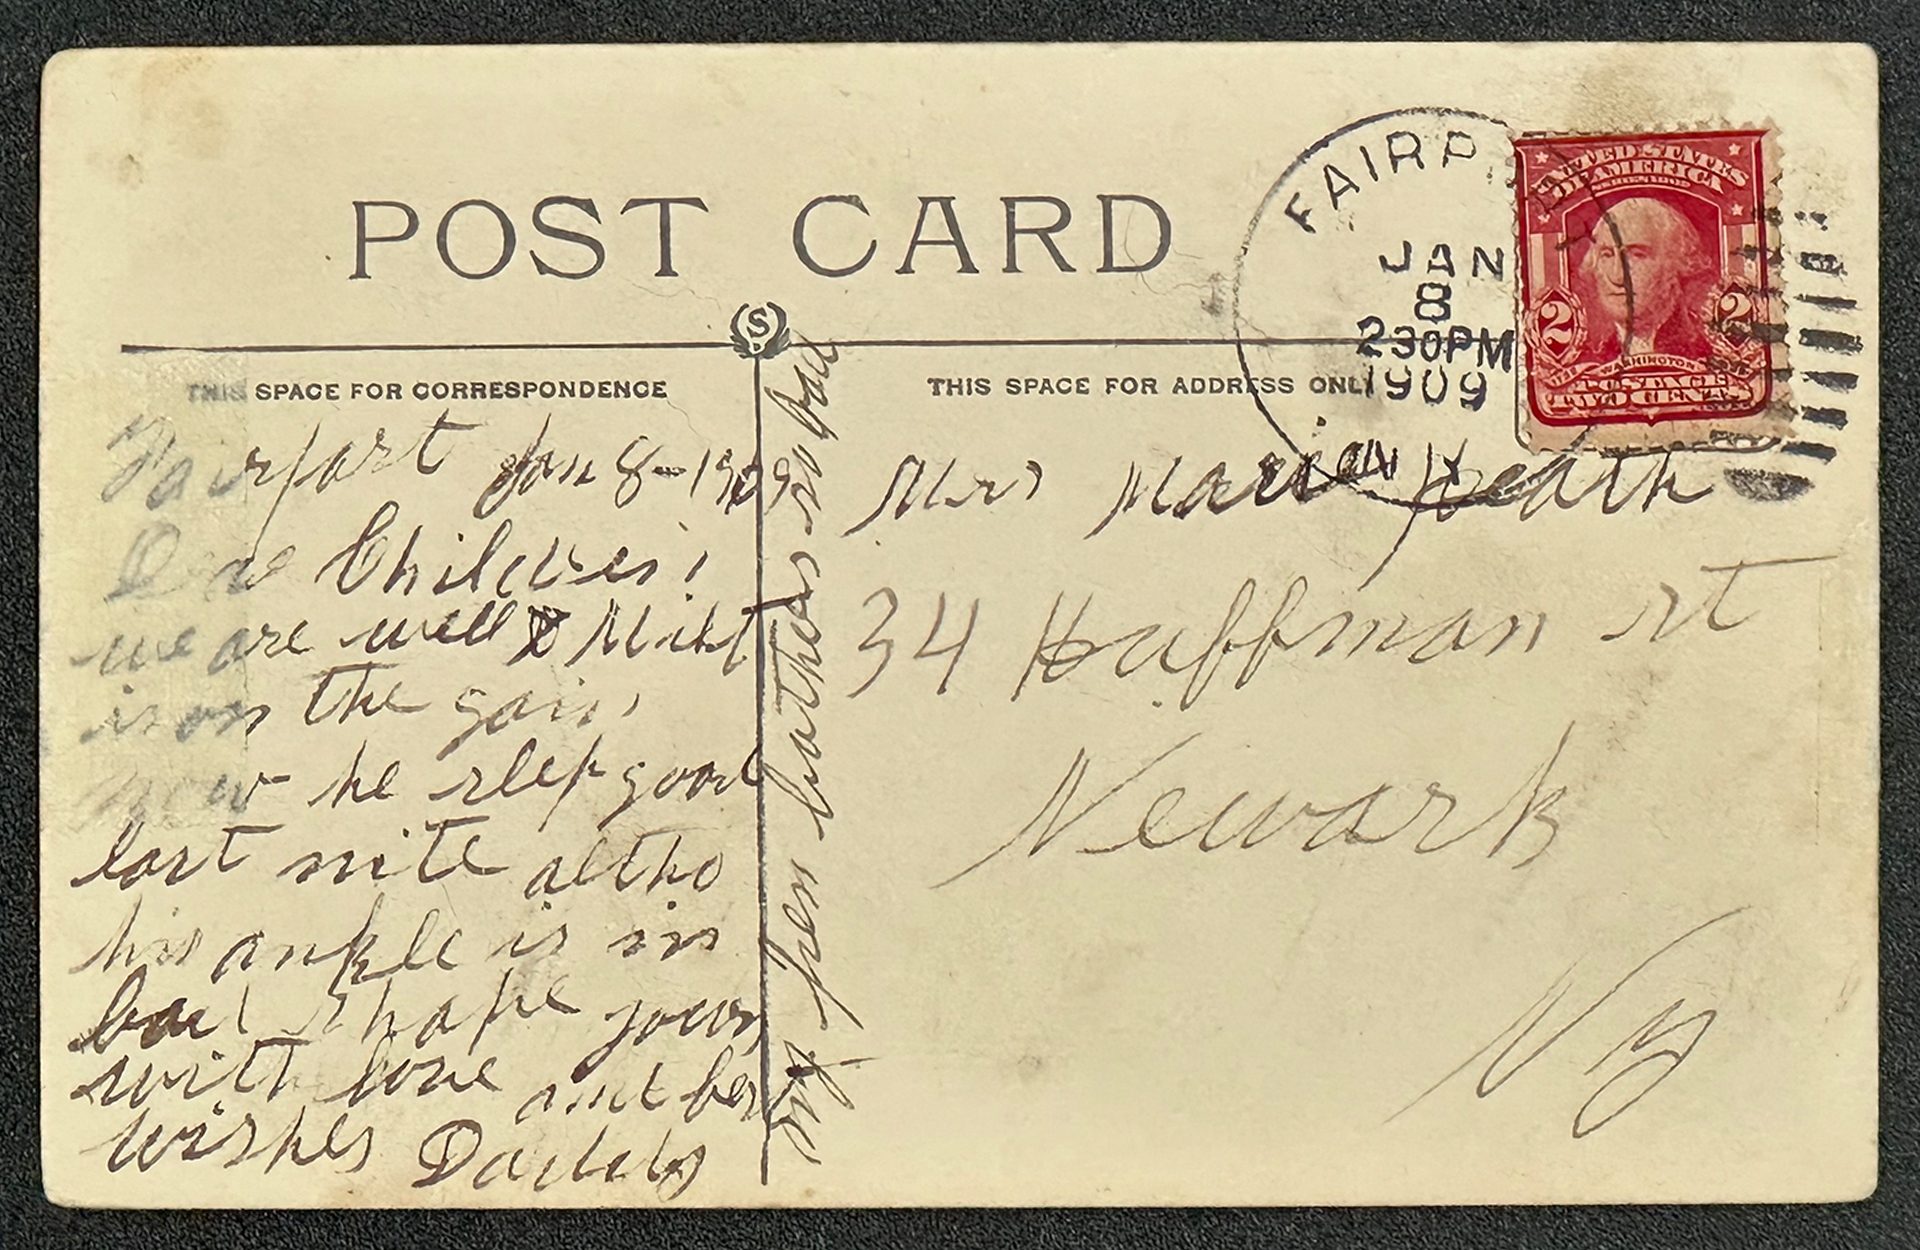 POST CARD
S
THIS SPACE FOR CORRESPONDENCE
THIS SPACE FOR ADDRESS ONLY
FAIRP
N.Y.
JAN
8
230PM
1909
UNITED STATES
OF AMERICA
SERIES 1902
2 2
1732 WASHINGTON 1799
POSTAGE
TWO CENTS
Fairport Jan 8-1909
Dear Children;
we are well & Milt
is on the gain
now he slep good
last nite altho
his ankle is in
bad shape yours
with love and best
wishes Daddy
my pen bothers so bad
Mrs Marion Heath
34 Huffman st
Newark
NY